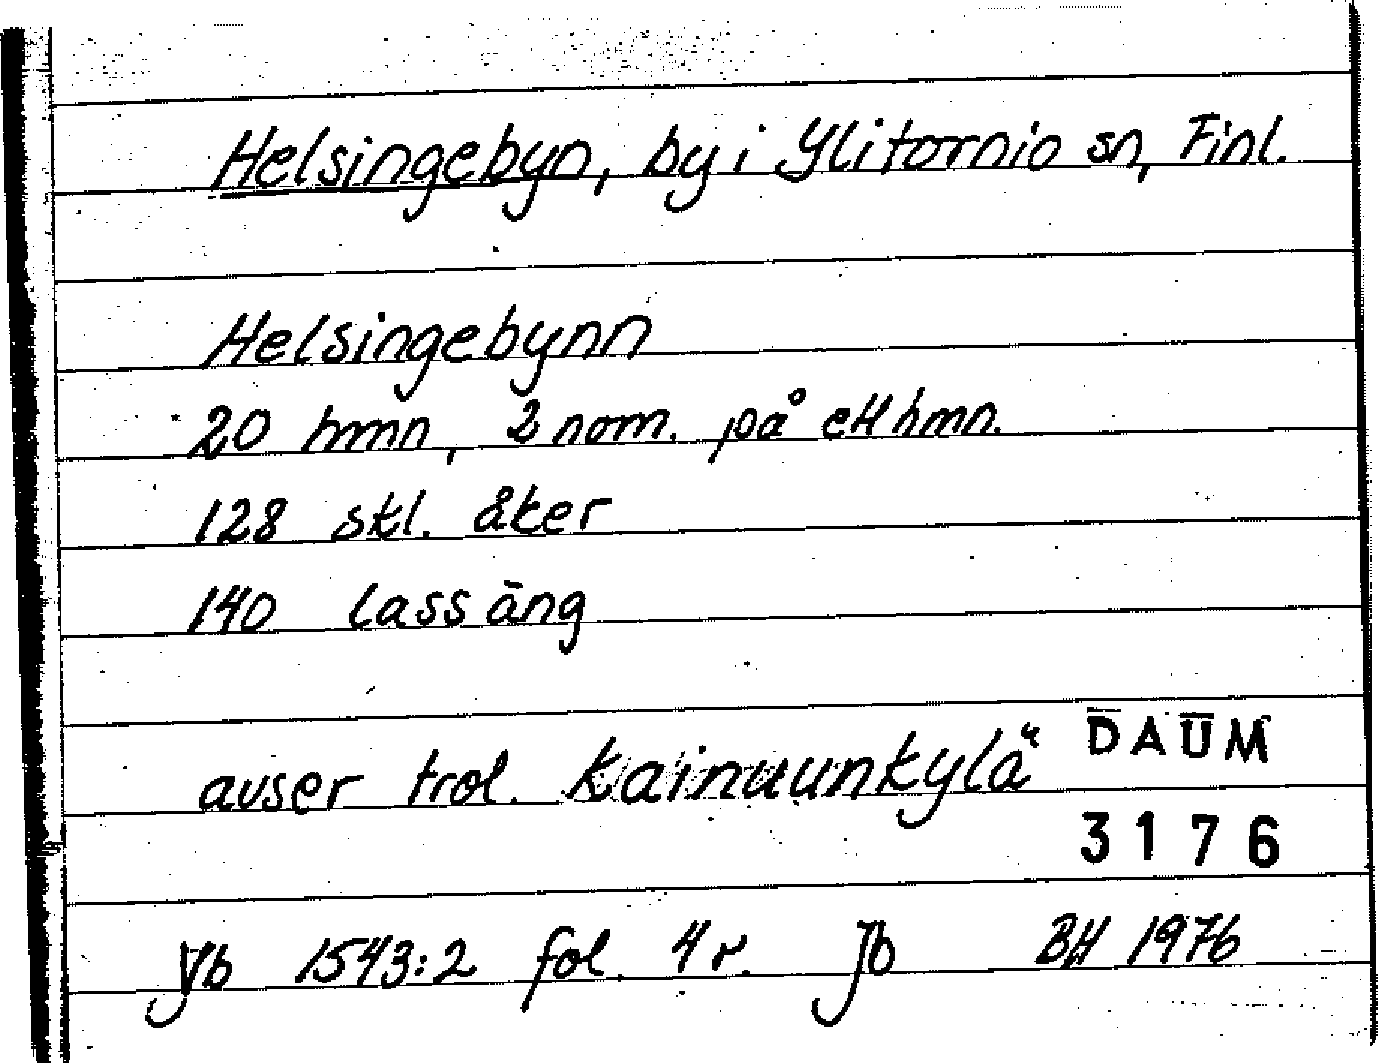 Helsingebyn, by i Ylitornio sn, Finl.
Helsingebynn
20 hmn, 2 nom. på ett hmn.
128 skl. åker
140 lass äng
avser trol. Kainuunkylä
DAUM
3176
Vb 1543:2 fol. 4 r. Jb BH 1976